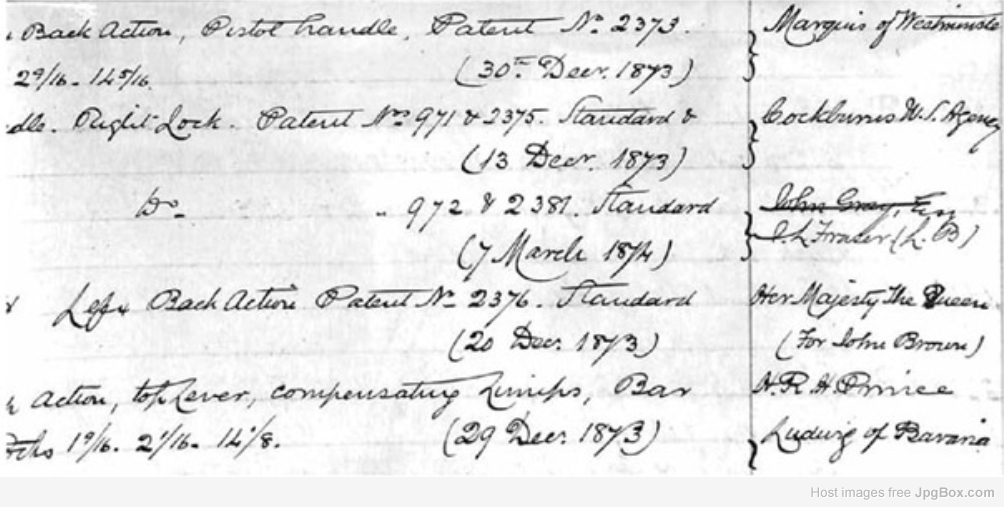 Back Action, Pistol handle, Patent No. 2373. Marquis of Westminster
2 9/16 - 14 5/16. (30th Decr. 1873)
dle. Right Lock. Patent Nos 971 & 2375. Standard & Cockburns W. S. Agency
(13 Decr. 1873)
Do. " 972 & 2381. Standard John Gray, Esq
(7 March 1874) Fraser (L. B)
Left Back Action Patent No 2376. Standard Her Majesty The Queen
(20 Decr. 1873) (For John Brown)
Action, top Lever, compensating Lumps, Bar H. R. H Prince
1 9/16. 2 1/16 - 14 1/8. (29 Decr. 1873) Ludwig of Bavaria
Host images free JpgBox.com